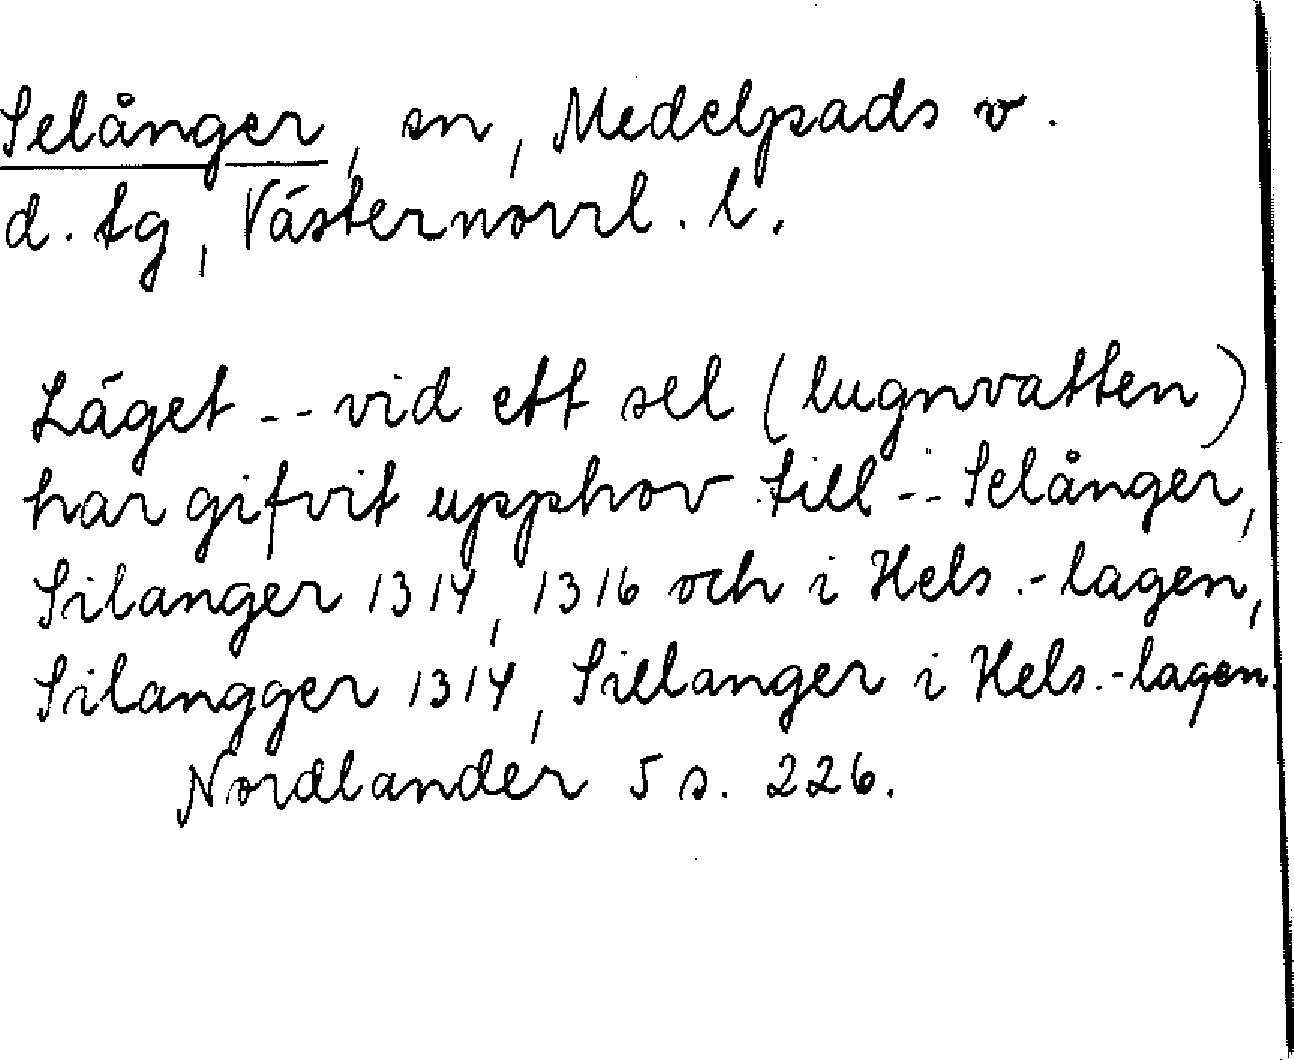 Selånger, sn, Medelpads v.
d. tg, Västernorrl. l.
Läget -- vid ett sel (lugnvatten)
har gifvit upphov till -- Selånger,
Silanger 1314, 1316 och i Hels.-lagen,
Silangger 1314, Sillanger i Hels.-lagen.
Nordlander 5 s. 226.